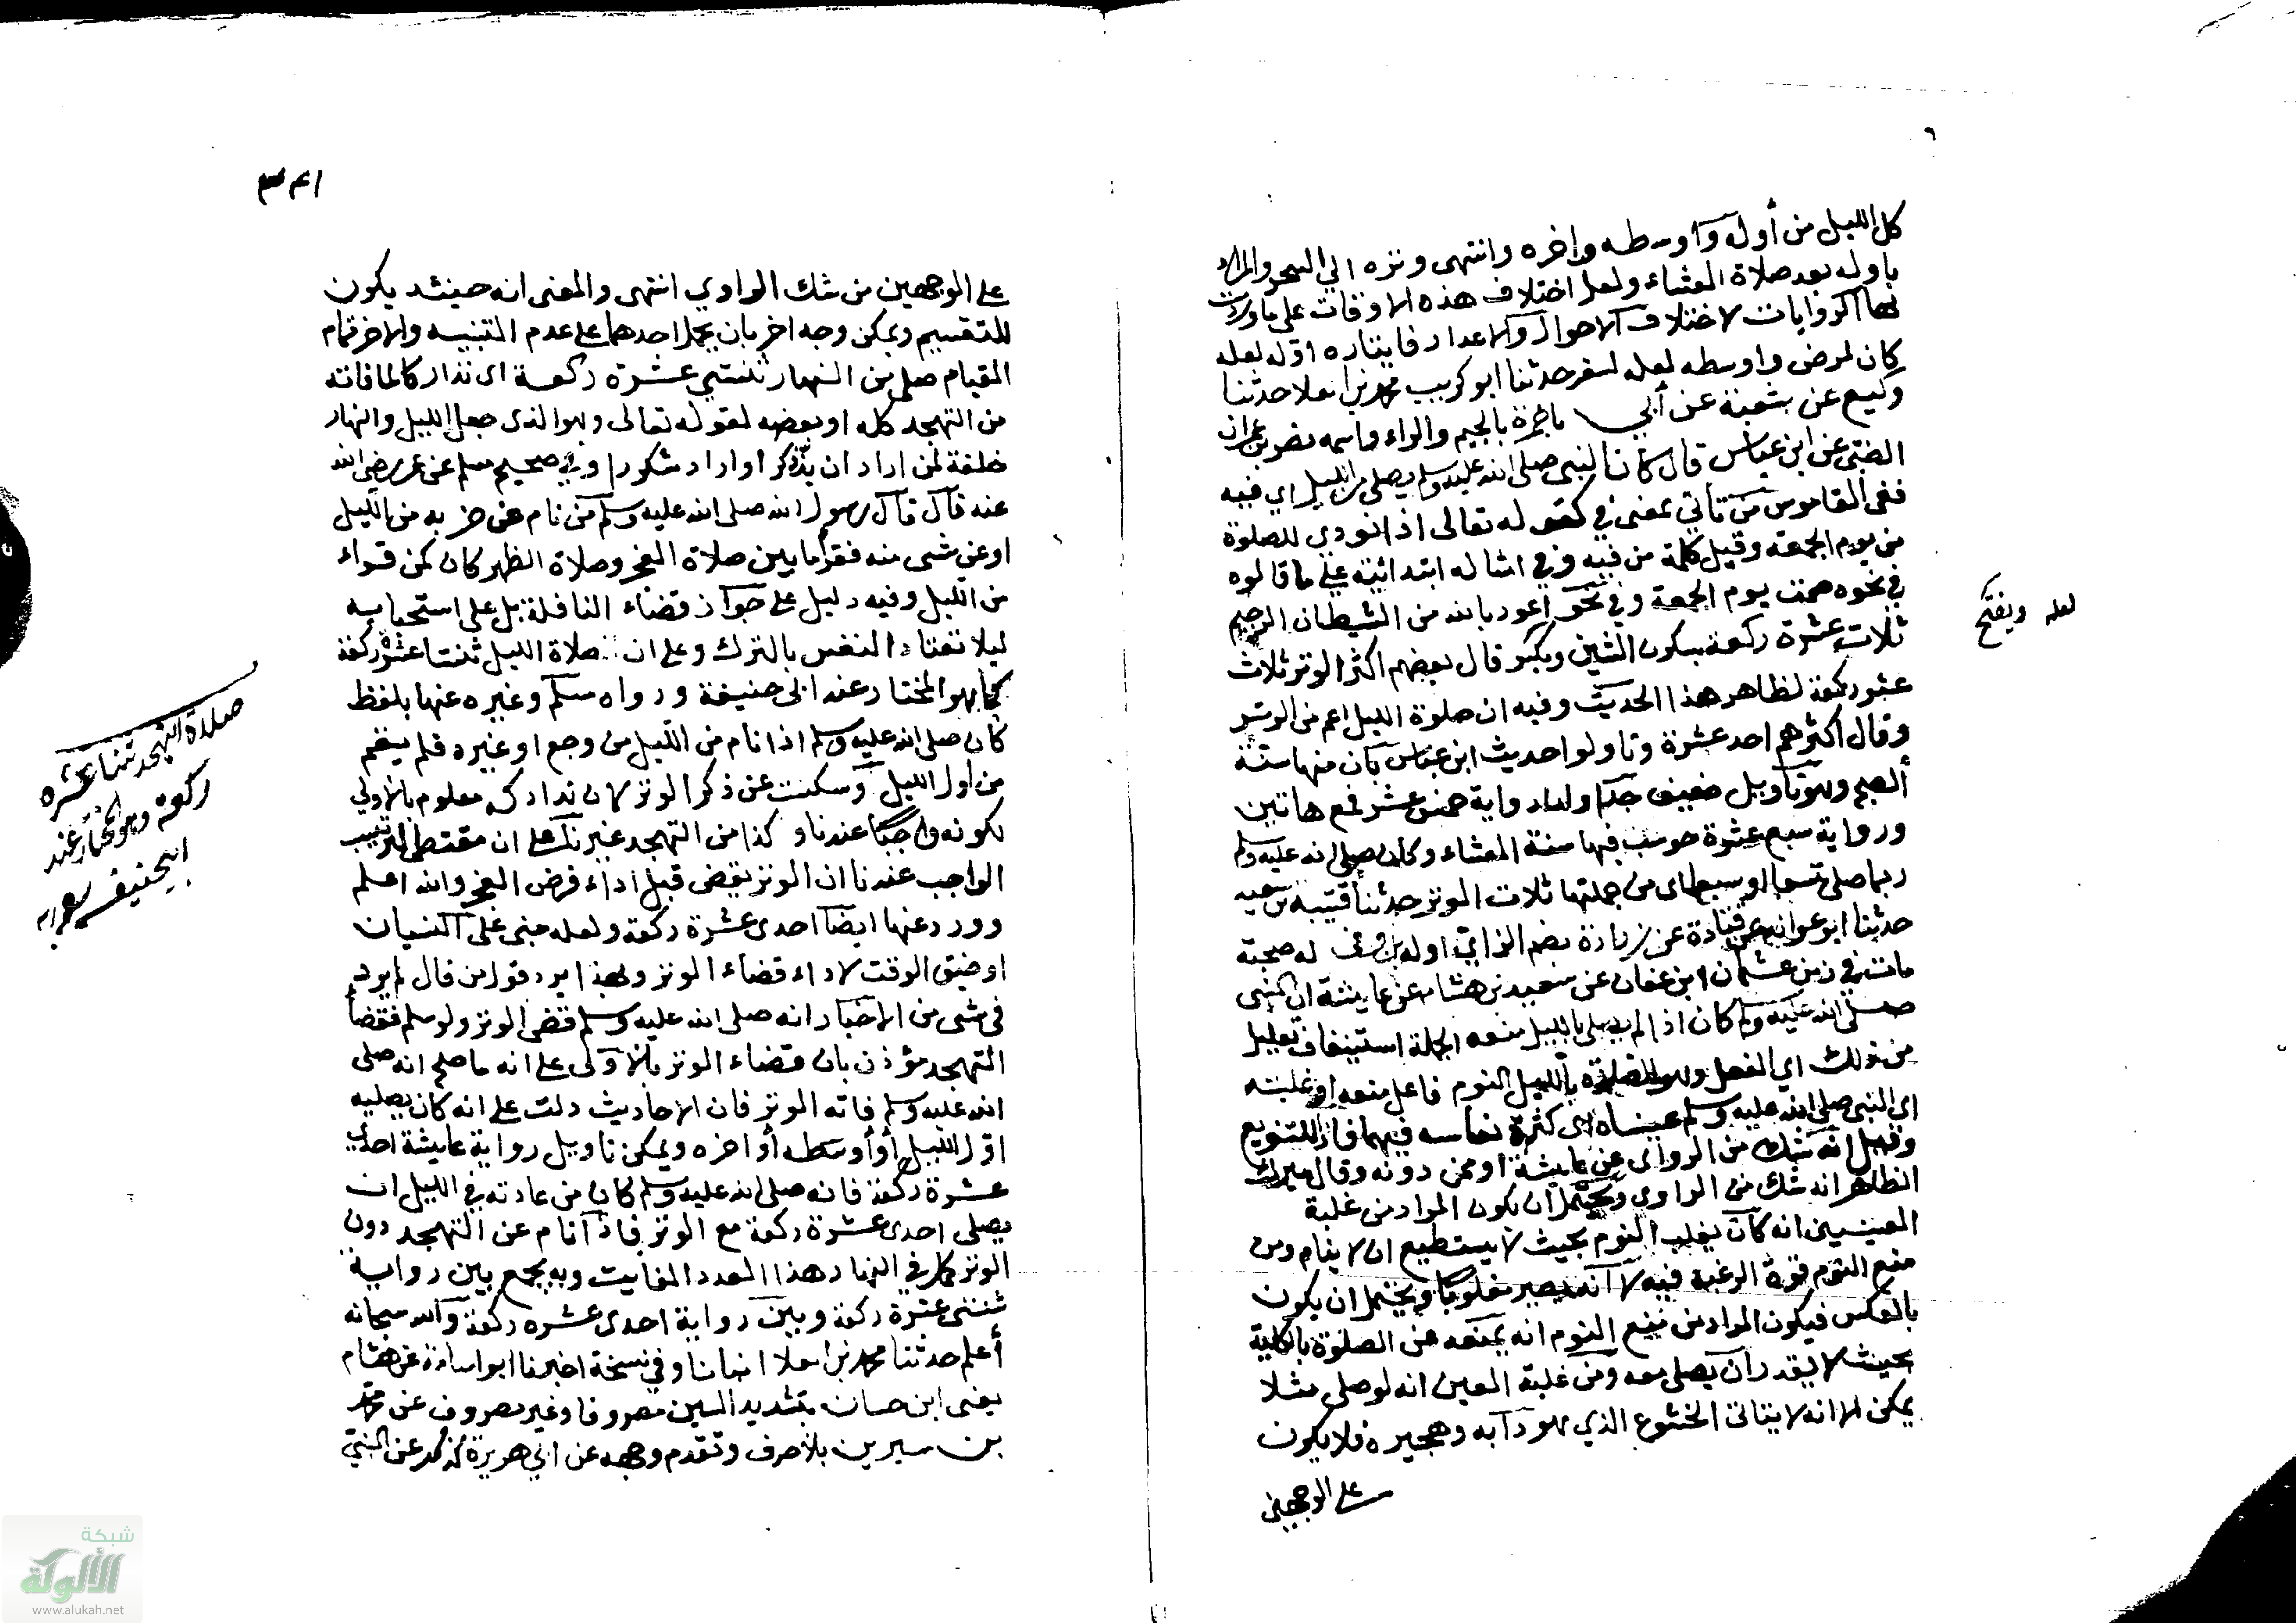 كل الليل من أوله وأوسطه وأخره وانتهى وتره الي السحر والمراد
باوله بعد صلاة العشاء ولعل اختلاف هذه الاوقات على ما وردت
بها الروايات لاختلاف الاحوال والاعذار فايتاره اوله لعله
كان لمرض واوسطه لعله لسفر حدثنا ابو كريب محمد بن العلا حدثنا
وكيع عن شعبة عن أبي جمرة بالجيم والراء واسمه نصر بن عمران
الضبى عن ابن عباس قال كان النبى صلى الله عليه وسلم يصلى من الليل اي فيه
ففى القاموس من تأتي بمعنى في كقوله تعالى اذا نودى للصلوة
من يوم الجمعة وقيل كلمة من فيه وفي امثاله ابتدائية على ما قالوه
في نحوه صمت يوم الجمعة وفي نحو أعوذ بالله من الشيطان الرجيم
ثلاث عشرة ركعة بسكون الشين ويكسر قال بعضهم اكثر الوتر ثلاث
عشر ركعة لظاهر هذا الحديث وفيه ان صلوة الليل اعم من الوتر
وقال اكثرهم احد عشرة وتاولوا حديث ابن عباس بان منها سنة
الصبح وهو تأويل ضعيف جدا ولهاد رواية خمس عشر فمع هاتين
ورواية سبع عشرة حوسب فيها سنة العشاء وكان صلى الله عليه وسلم
ربما صلى تسعا او سبعا اى من جملتها ثلاث الوتر حدثنا قتيبة بن سعيد
حدثنا ابو عوانة عن قتادة عن زرارة بضم الزاي اوله بن اوفى له صحبة
مات في زمن عثمان ابن عفان عن سعيد بن هشام عن عايشة ان النبى
صلى الله عليه وسلم كان اذا لم يصلى بالليل منعه الجملة استيناف تعليل
من ذلك اي الفعل وهو الصلوة بالليل النوم فاعل منعه او غلبته
اي النبى صلى الله عليه وسلم عيناه اى كثرة نعاسه فيهما فاو للتنويع
وقيل انه شك من الراوى عن عايشة او ممن دونه وقال ميرك
الظاهر انه شك من الراوى ويحتمل ان يكون المراد من غلبة
العينين انه كان يغلب النوم بحيث لا يستطيع ان لا ينام ومن
منع النوم قوة الرغبة فيه لا انه يصير مغلوبا ويحتمل ان يكون
بالعكس فيكون المراد من منع النوم انه يمنعه من الصلوة بالكلية
بحيث لا يقدر ان يصلى معه ومن غلبة العين انه لو صلى مثلا
يمكن الا انه لا يتاتى الخشوع الذي هو دابه وهجيره فلا يكون
على الوجهين
لعله ويفتح
٣٤١
على الوجهين من شك الراوي انتهى والمعنى انه حينئذ يكون
للتقسيم ويمكن وجه اخر بان يحمل احدهما على عدم التنبيه والاخر تمام
القيام صلى من النهار ثنتي عشرة ركعة اى تداركا لما فاته
من التهجد كله او بعضه لقوله تعالى وهو الذى جعل الليل والنهار
خلفة لمن اراد ان يذكر او اراد شكورا وفي صحيح مسلم عن عمر رضى الله
عنه قال قال رسول الله صلى الله عليه وسلم من نام عن حزبه من الليل
او عن شى منه فقرأ ما بين صلاة الفجر وصلاة الظهر كان كمن قراه
من الليل وفيه دليل على جواز قضاء النافلة بل على استحبابه
ليلا تعتاد النفس بالترك وعلى ان صلاة الليل ثنتا عشرة ركعة
كما هو المختار عند ابى حنيفة ورواه مسلم وغيره عنها بلفظ
كان صلى الله عليه وسلم اذا نام من الليل من وجع او غيره فلم يقم
من اول الليل وسكتت عن ذكر الوتر لان تداركه معلوم بالاولي
لكونه واجبا عندنا وكذا من التهجد غيرنا على ان مقتضى الترتيب
الواجب عندنا ان الوتر يقضى قبل اداء فرض الفجر والله اعلم
وورد عنها ايضا احدى عشرة ركعة ولعله مبنى على النسيان
او ضيق الوقت لاداء قضاء الوتر وبهذا يرد قول من قال لم يرد
فى شى من الاخبار انه صلى الله عليه وسلم قضى الوتر ولو سلم فقضاء
التهجد مؤذن بان قضاء الوتر بالاولى على انه ما صلح انه صلى
الله عليه وسلم فاته الوتر فان الاحاديث دلت على انه كان يصليه
اول الليل أو أوسطه أو اخره ويمكن تاويل رواية عايشة احدي
عشرة ركعة فانه صلى الله عليه وسلم كان من عادته في الليل ان
يصلى احدى عشرة ركعة مع الوتر فاذا نام عن التهجد دون
الوتر في النهار هذا العدد الفايت وبه يجمع بين رواية
ثنتى عشرة ركعة وبين رواية احدى عشره ركعة والله سبحانه
أعلم حدثنا محمد بن العلا انبانا وفي نسخة اخبرنا ابو اسامة عن هشام
يعنى ابن حسان بتشديد السين مصروفا وغير مصروف عن محمد
بن سيرين بلا صرف وتقدم وجهه عن ابي هريرة عن النبى
صلاة التهجد ثنتا عشره
ركعة وهو المختار عند
ابيحنيفه
شبكة
الألوكة
www.alukah.net